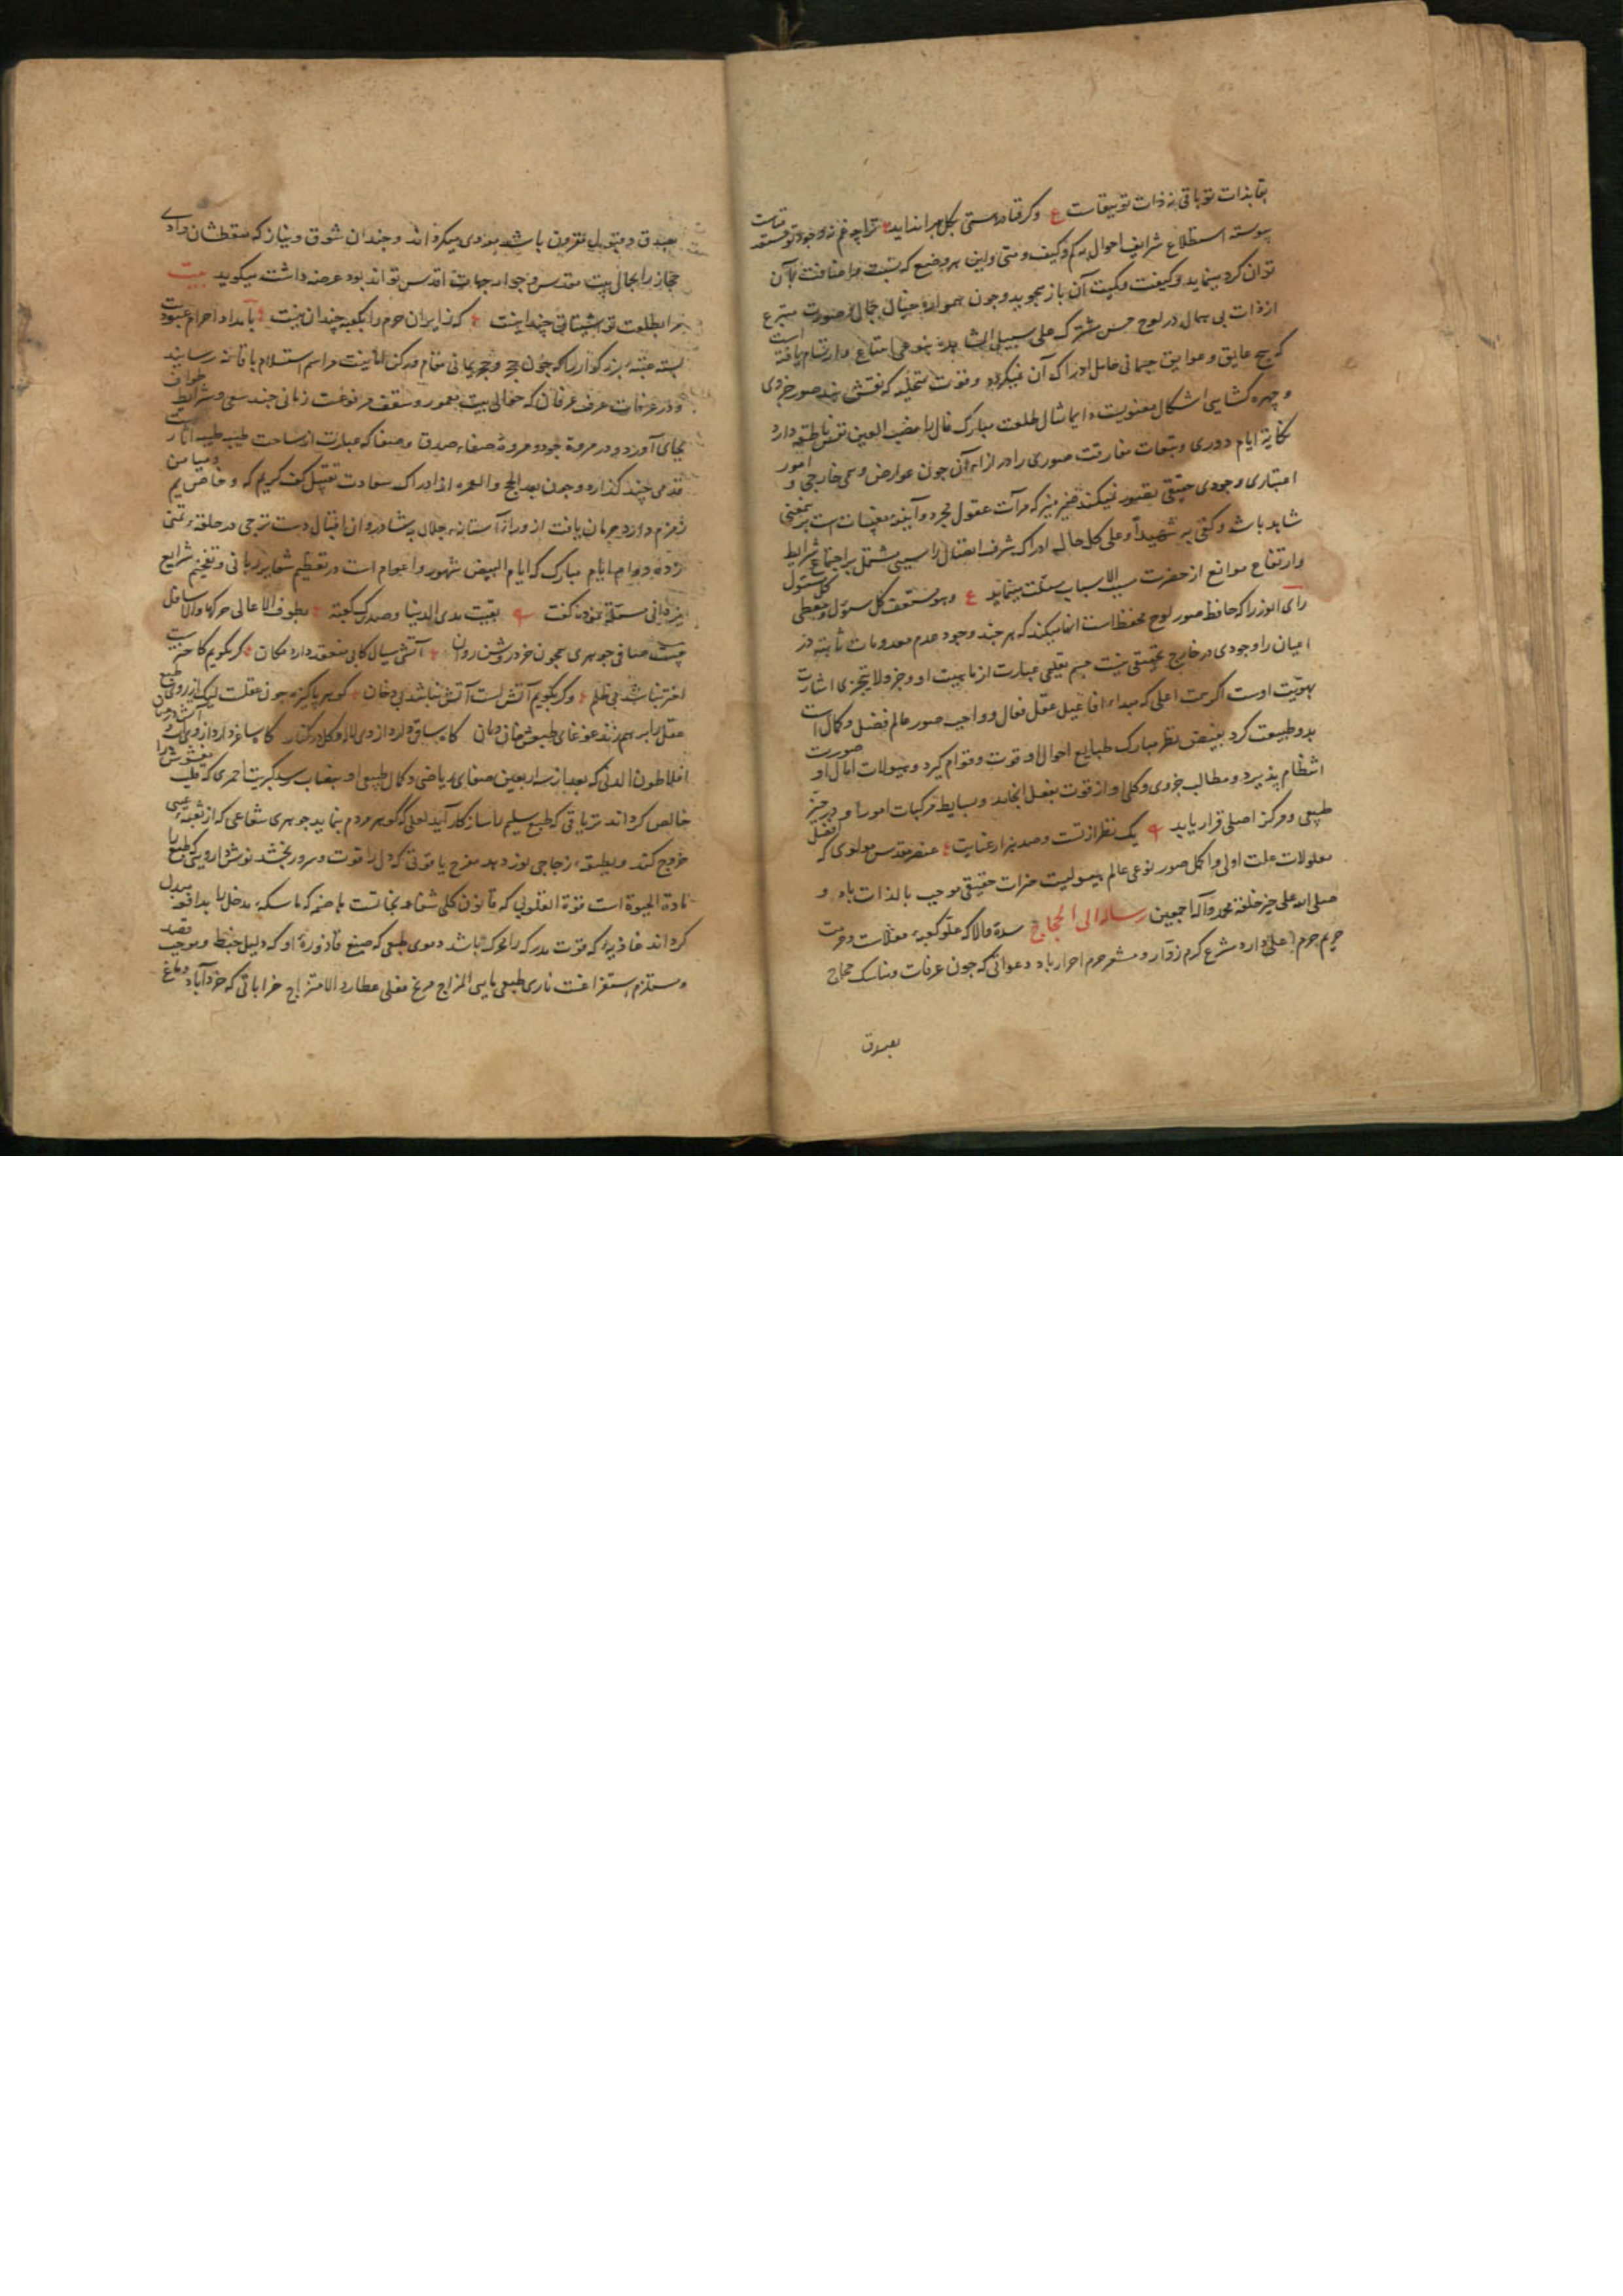 بقا بذات تو باقی نه ذات تو ببقاست ع وکر فنا در هستی بکل براندایند ترا چه غم نه وجود تو مستفد
پیوسته استطلاع شرایف احوال بکم وکیف ومتی واین بهر وضع که بنسبت واضافت بآن
توان کرد مینماید وکیفیت وکمیت آن باز میجوید وچون همواره خیال جمال صورت
از ذات بی همال در لوح حس مشترک علی سبیل المشاهده بنوعی ارتسام یافته است
که هیچ عایق وعوایق جسمانی حایل ادراک آن نمیکردد وقوت متخیله که نقش بند صور جزوی
وچهره کشای اشکال معنویست مثال طلعت مبارک فال را نصب العین نفس ناطقه دارد
نکایة ایام دوری وتبعات مفارقت صوری را در ازاء آن چون عوارض وهمی خارجی و امور
اعتباری وجودی حقیقی تصور نمیکند ضمیر منیر که مرآت عقول مجرد وآینه مغیبات است برین معنی
شاهد باد وکفی به شهیدا وعلی کل حال ادراک شرف اتصال را مشتمل بر اجتماع شرایط
وارتفاع موانع از حضرت مسبب الاسباب مسئلت مینماید ع وهو مستحق کل سئول ومعطی کل مسئول
رأی انور را که حافظ صور لوح محفوظ است انها میکند که هر چند وجود عدم معدومات ثابته در
اعیان را وجودی در خارج تحقیقی نیست جسم تعلیمی عبارت از ماهیت او وجزو لا یتجزی اشارت
بهویت اوست اکر همت اعلی که مبداء افاعیل عقل فعال وواهب صور عالم فضل وکمال است
بدو طبیعت کرد بفیض نظر مبارک طبایع احوال او قوت وقوام کیرد وهیولات آمال او صورت
انتظام پذیرد ومطالب جزوی وکلی او از قوت بفعل انجامد وبسایط ومرکبات امور او در حیز
طبیعی ومرکز اصلی قرار یابد یک نظر از تست وصد هزار عنایت عنصر مقدس مولوی که افضل
معلولات علت اولی واکمل صور نوعی عالم هیولیست خیرات حقیقی موجب بالذات باد و
صلی الله علی خیر خلقه محمد وآله اجمعین رساله الی الحجاج سده والا که علو کعبه معلات وحرمت
حریم حرم اعلی دارد مشرع کرم زوار ومشعر حرم احرار باد دعواتی که چون عرفات ومناسک حجاج
بصدق
بصدق ومقبول مقرون باشد مؤدی میکرداند وچندان شوق ونیاز که متعطشان وادی
حجاز را بجمال بیت مقدس وجوار جهات اقدس تواند بود عرضه داشت میکوید بیت
مرا بطلعت تو اشتیاق چندانیست که زایران حرم را بکعبه چندان نیست بامداد احرام عبودیت
بسته عتبه بزرکوار را که چون حجر وحجر یمانی مقام ورکن امانیست مراسم استلام باقامت رساند
ودر عرفات عرف عرفان که حوالی بیت معمور وسقف مرفوعست زمانی چند سعی وشرایط طواف
بجای آورد ودر مروه جود ومروت وصفاء صدق وصفا که عبارت از ساحت طیبه طیبه آثار است
قدمی چند کذارد وچون بعد الحج والعمره از ادراک سعادت تقبیل کف کریم که خاصیت یم ومیامن
زمزم دارد حرمان یافت از وراء آستانه جلال پشادروان اقبال دست ترجی در حلقه تمنی
زده دوام ایام مبارک که ایام البیض شهور واعوام است در تعظیم شعایر ربانی وتفخیم شرایع
یزدانی مسئلت نمود وکفت بقیت مدی الدنیا وصدرک کعبة یطوف الاعالی حولها والاسافل
چیست صافی جوهری همچون خرد روشن روان آتشی سیال کابی منعقد دارد مکان کر بکویم کاخترست
اختر نباشد بی ظلم ور بکویم آتش است آتش نباشد بی دخان کوهر پاکیزه چون عقلست لیک از روی طبع
عقل را بر هم زند غوغای طبعش هر زمان کاه ساقی دارد از وی لاله وکل در کنار کاه ساغر دارد از وی
افلاطون الدنی که بعد از سه اربعین صفای ریاضی وکمال طبیعی او بنصاب رسد کبریت احمری که قلب مغشوش را
خالص کرداند تریاقی که طبع سلیم را سازکار آید لعلی که کوهر مردم بنماید جوهری شعاعی که از ثقبه عنبی
خروج کند وبطبقه زجاجی نور دهد مفرح یاقوتی که دل را قوت وسرور بخشد نوش دارویی که طبع را
مادة الحیوة است قوة القلوبی که قانون کلی شفاء ونجاتست هاضمه که ماسکه مدخل را بدافعه مبدل
کرداند غاذیه که قوت مدرکه را محرک باشد دموی طبعی که صبغ قاروره او که دلیل خبط وموجب فصد
ومستلزم استفراغست ناری طبعی یابس المزاج مریخ فعلی عطارد الامتزاج خراباتی که خرد آباد دماغ